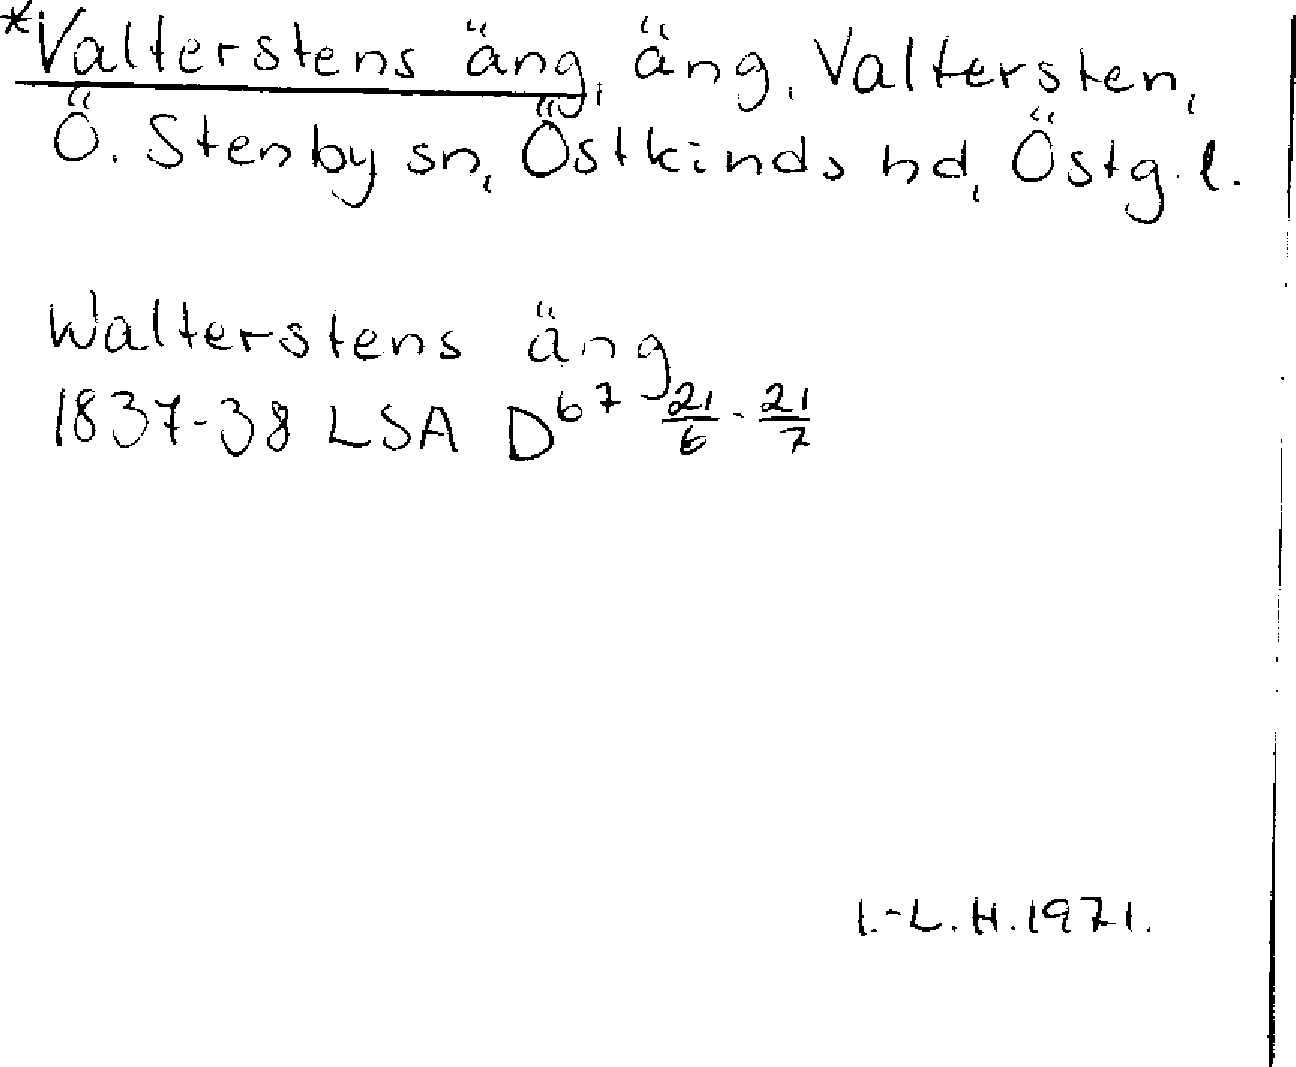 *Valterstens äng, äng, Valtersten,
Ö. Stenby sn, Östkinds hd, Östg. l.
Walterstens äng
1837-38 LSA D67 21/6 - 21/7
I.-L. H. 1971.